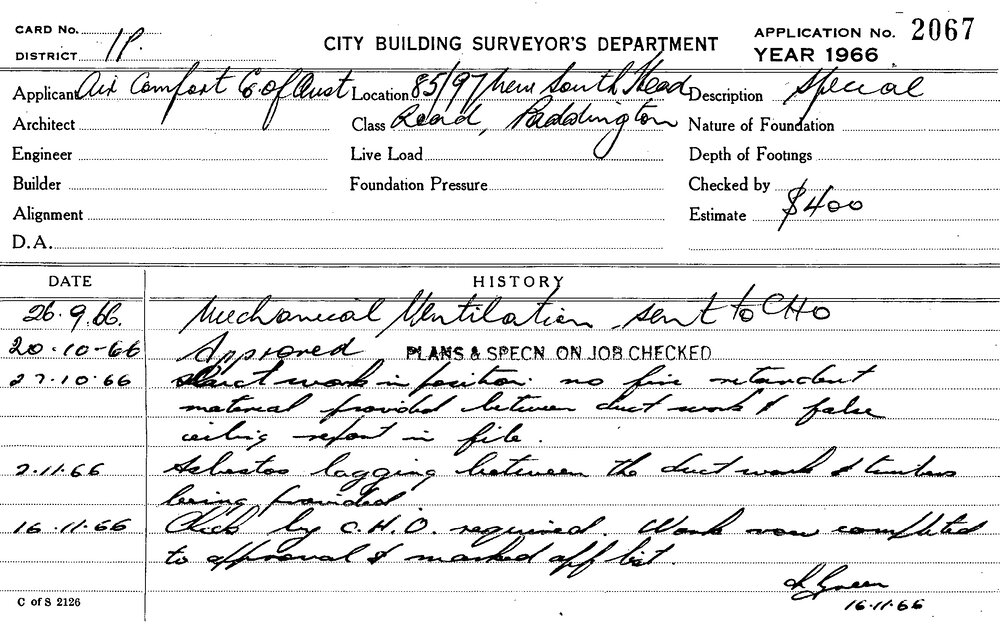 CARD No.
DISTRICT 1P.
CITY BUILDING SURVEYOR'S DEPARTMENT
APPLICATION No. 2067
YEAR 1966
Applicant Air Comfort Co of Aust Location 85/97 New South Head Description Special
Architect Class Road, Paddington Nature of Foundation
Engineer Live Load Depth of Footings
Builder Foundation Pressure Checked by
Alignment Estimate $400
D.A.
DATE HISTORY
26.9.66. Mechanical Ventilation sent to CHO
20.10-66 Approved PLANS & SPECN ON JOB CHECKED
27.10.66 duct work in position. no fire retardent
material provided between duct work & false
ceiling report in file.
2.11.66 Asbestos lagging between the duct work & timbers
being provided
16.11.66 Check by C.H.O. required. Work now completed
to approval & marked off list.
Green
16.11.66
C of S 2126